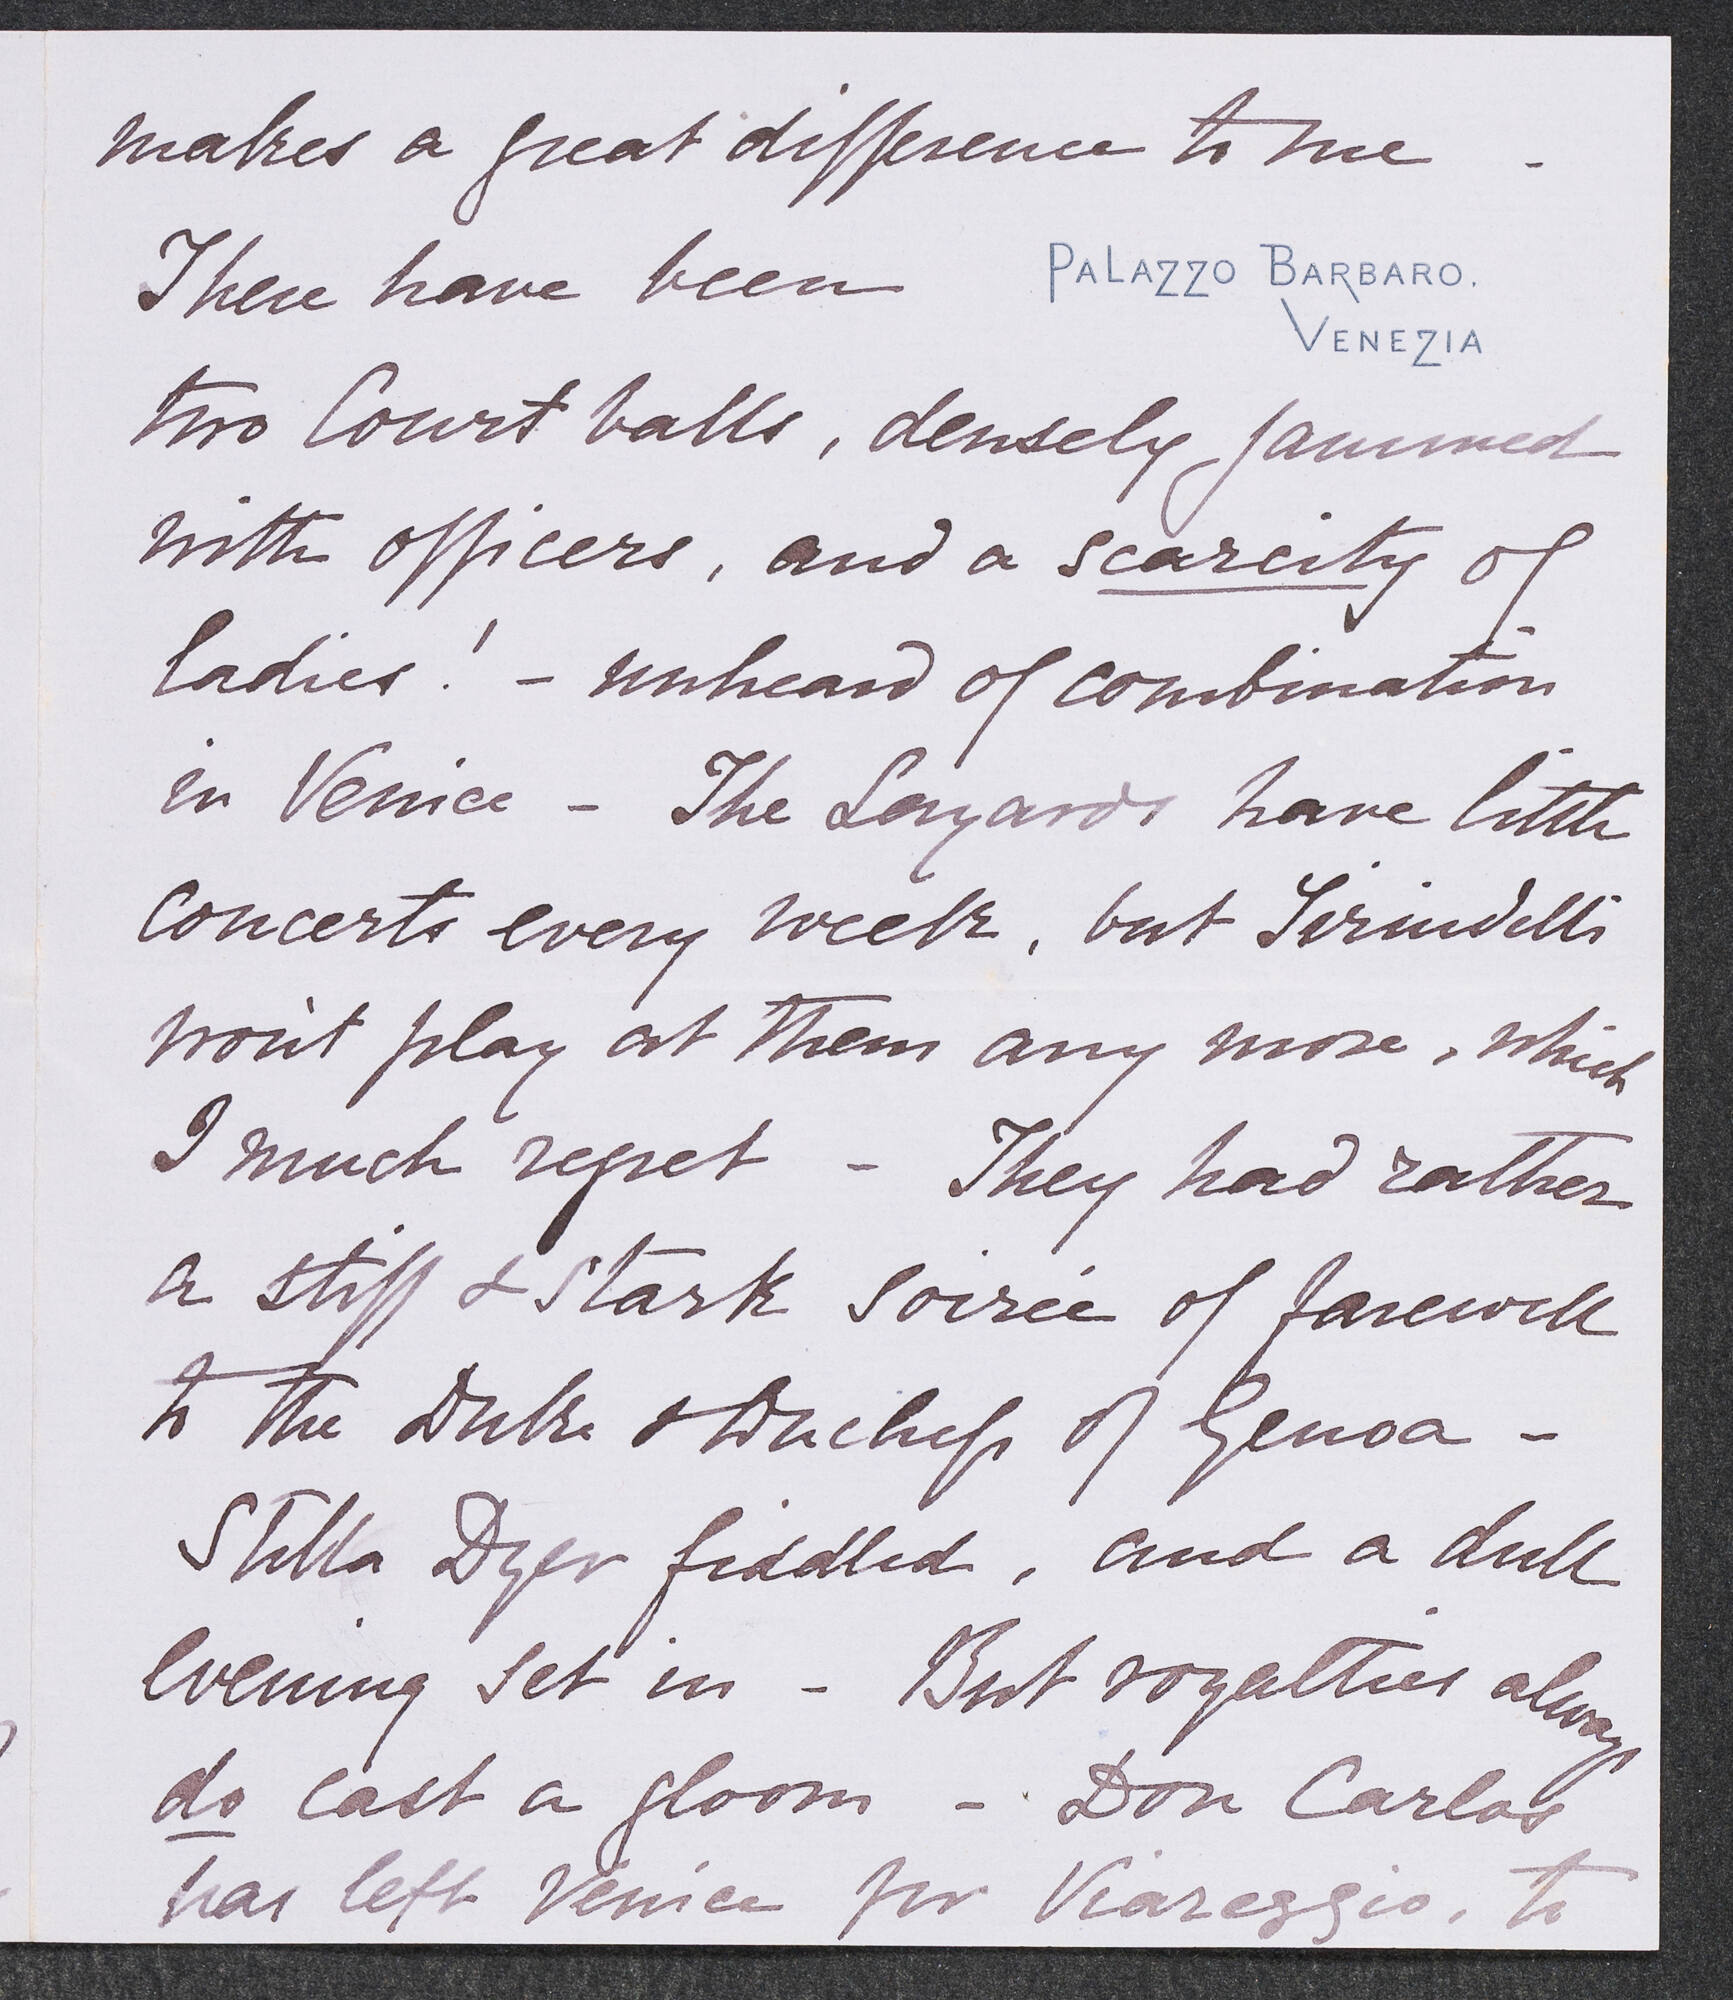 makes a great difference to me -
There have been
PALAZZO BARBARO.
VENEZIA
two Court balls, densely jammed
with officers, and a scarcity of
ladies! - unheard of combination
in Venice - The Layards have little
concerts every week, but Tirindelli
won't play at them any more, which
I much regret - They had rather
a stiff & stark soirée of farewell
to the Duke & Duchess of Genoa -
Stella Dyer fiddled, and a dull
evening set in - But royalties always
do cast a gloom - Don Carlos
has left Venice for Viareggio, to